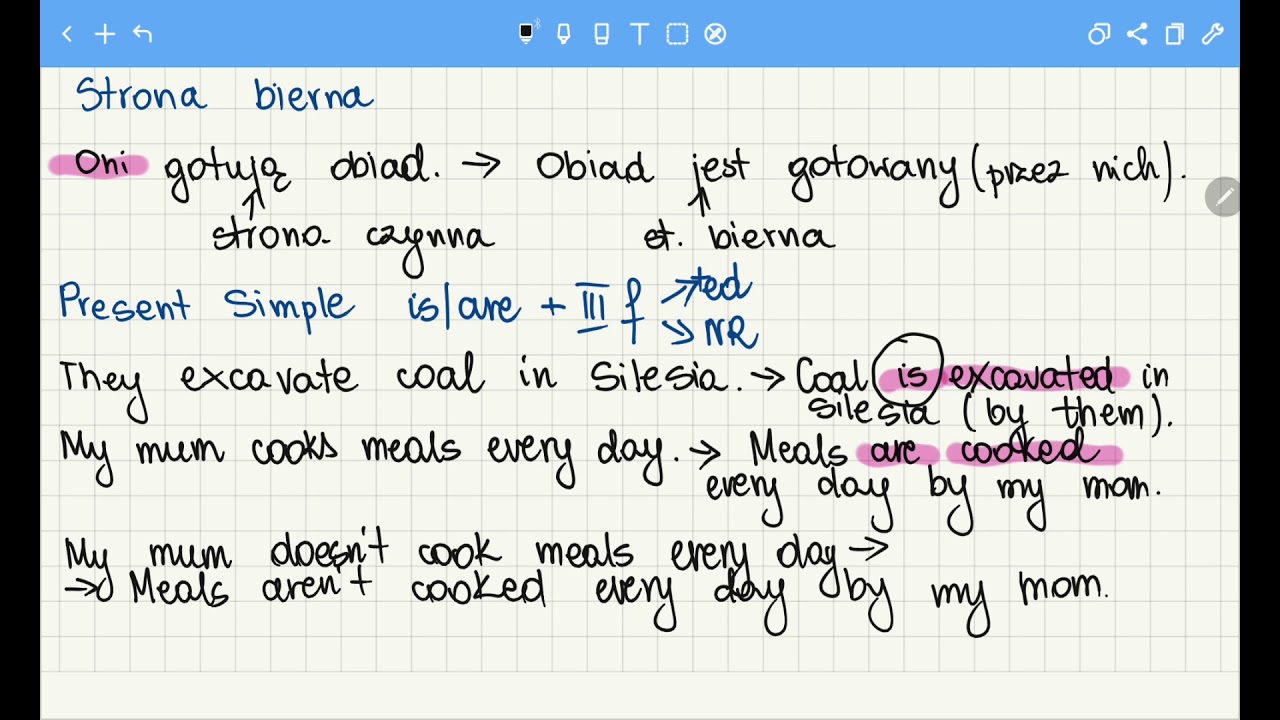 Strona bierna
Oni gotują obiad. → Obiad jest gotowany (przez nich).
strona czynna st. bierna
Present Simple is/are + III f → +ed
→ NR
They excavate coal in Silesia. → Coal is excavated in
Silesia (by them).
My mum cooks meals every day. → Meals are cooked
every day by my mom.
My mum doesn't cook meals every day →
→ Meals aren't cooked every day by my mom.